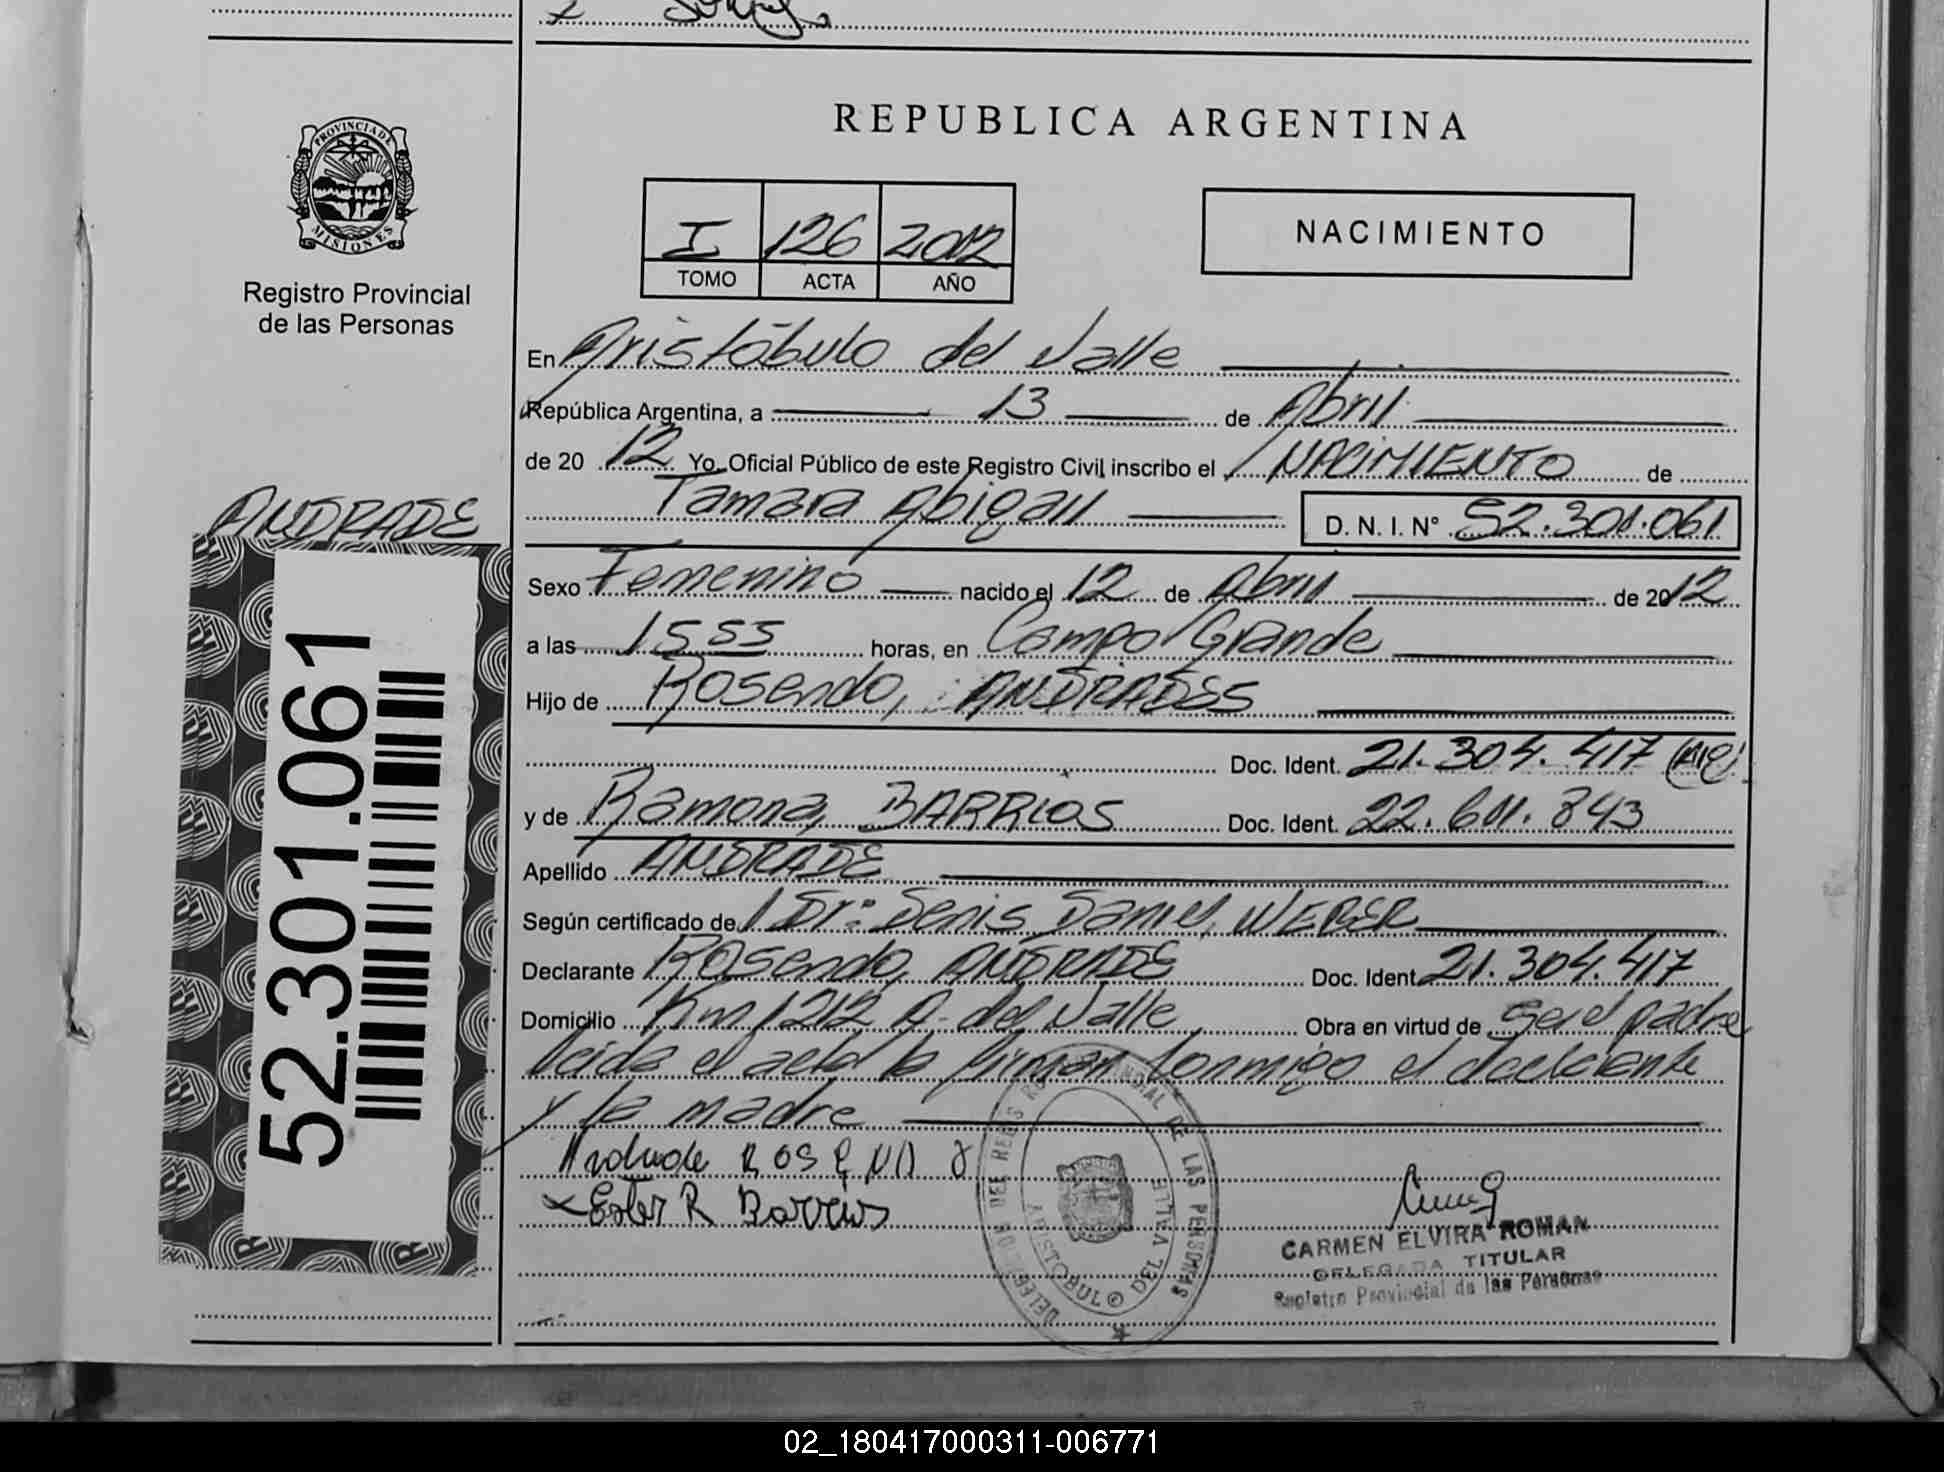 REPUBLICA ARGENTINA
PROVINCIA DE
MISIONES
Registro Provincial
de las Personas
I 126 2012
TOMO ACTA AÑO
NACIMIENTO
En Aristóbulo del Valle
República Argentina, a 13 de Abril
de 2012 Yo, Oficial Público de este Registro Civil inscribo el NACIMIENTO de
Tamara Abigail D. N. I. N° 52.301.061
ANDRADE
52.301.061
Sexo Femenino nacido el 12 de Abril de 2012
a las 15 55 horas, en Campo Grande
Hijo de Rosendo, ANDRADES
Doc. Ident. 21.304.417
y de Ramona, BARRIOS Doc. Ident. 22.601.843
Apellido ANDRADE
Según certificado de Dr: Denis Daniel, WEBER
Declarante Rosendo, ANDRADE Doc. Ident. 21.304.417
Domicilio Km 1212 A. del Valle Obra en virtud de ser el padre
leida el acta la firman conmigo el declarante
y la madre
Andrade ROSENDO
x Ester R Barrios
ARISTOBULO DEL VALLE
CARMEN ELVIRA ROMAN
DELEGADA TITULAR
Registro Provincial de las Personas
02_180417000311-006771